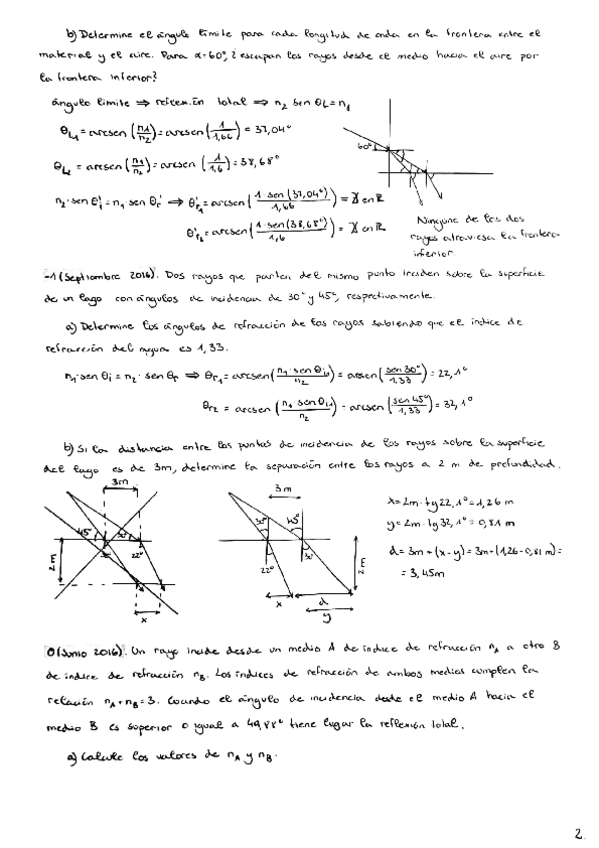 b) Determine el ángulo límite para cada longitud de onda en la frontera entre el
material y el aire. Para α=60°, ¿escapan los rayos desde el medio hacia el aire por
la frontera inferior?
ángulo límite ⇒ reflexión total ⇒ n₂ sen θL = n₁
θL₁ = arcsen (n₁/n₂) = arcsen (1/1,66) = 37,04°
60°
θL₂ = arcsen (n₁/n₂) = arcsen (1/1,6) = 38,68°
n₂ · sen θi' = n₁ · sen θr' ⇒ θr₁' = arcsen (1 · sen (37,04°)/1,66) = ∄ en ℝ
θr₂' = arcsen (1 · sen (38,68°)/1,6) = ∄ en ℝ
Ninguno de los dos
rayos atraviesa la frontera
inferior
-1 (Septiembre 2016). Dos rayos que parten del mismo punto inciden sobre la superficie
de un lago con ángulos de incidencia de 30° y 45°, respectivamente.
a) Determine los ángulos de refracción de los rayos sabiendo que el índice de
refracción del agua es 1,33.
n₁ · sen θi = n₂ · sen θr ⇒ θr₁ = arcsen (n₁ · sen θi₁/n₂) = arcsen (sen 30°/1,33) = 22,1°
θr₂ = arcsen (n₁ · sen θi₂/n₂) = arcsen (sen 45°/1,33) = 32,1°
b) Si la distancia entre los puntos de incidencia de los rayos sobre la superficie
del lago es de 3m, determine la separación entre los rayos a 2 m de profundidad.
3m
45° 30°
22°
2m
x
3m
30° 45°
22°
2m
x d
y
x = 2m · tg 22,1° = 1,26 m
y = 2m · tg 32,1° = 0,81 m
d = 3m + (x - y) = 3m + (1,26 - 0,81 m) =
= 3,45m
0 (Junio 2016). Un rayo incide desde un medio A de índice de refracción nA a otro B
de índice de refracción nB. Los índices de refracción de ambos medios cumplen la
relación nA + nB = 3. Cuando el ángulo de incidencia desde el medio A hacia el
medio B es superior o igual a 49,88° tiene lugar la reflexión total.
a) Calcule los valores de nA y nB.
2